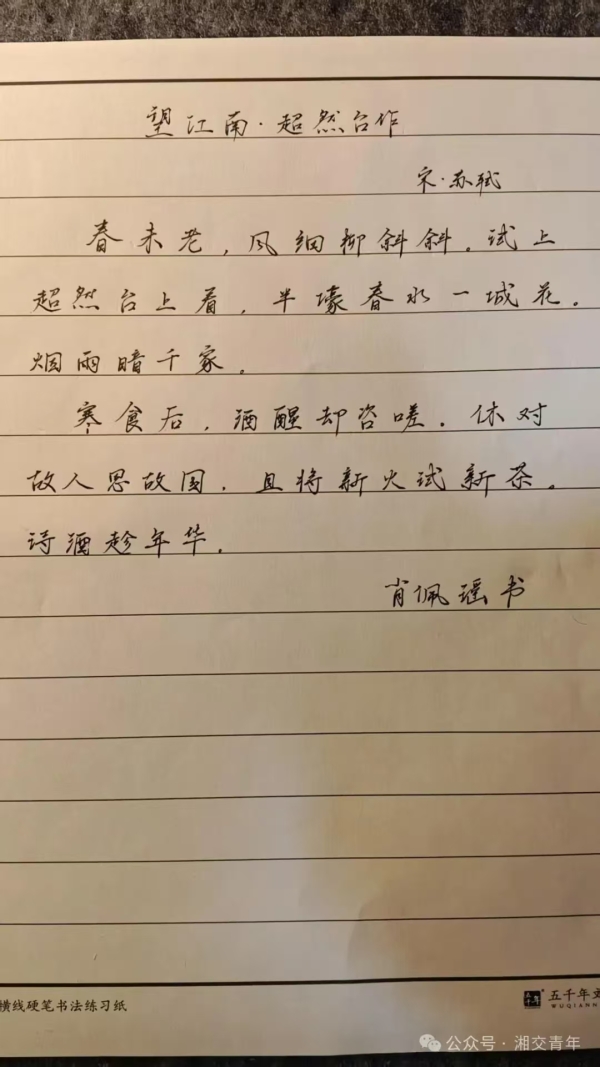 望江南·超然台作
宋·苏轼
春未老，风细柳斜斜。试上
超然台上看，半壕春水一城花。
烟雨暗千家。
寒食后，酒醒却咨嗟。休对
故人思故国，且将新火试新茶。
诗酒趁年华。
肖佩瑶书
横线硬笔书法练习纸
五千年文
WUQIANN
公众号·湘交青年